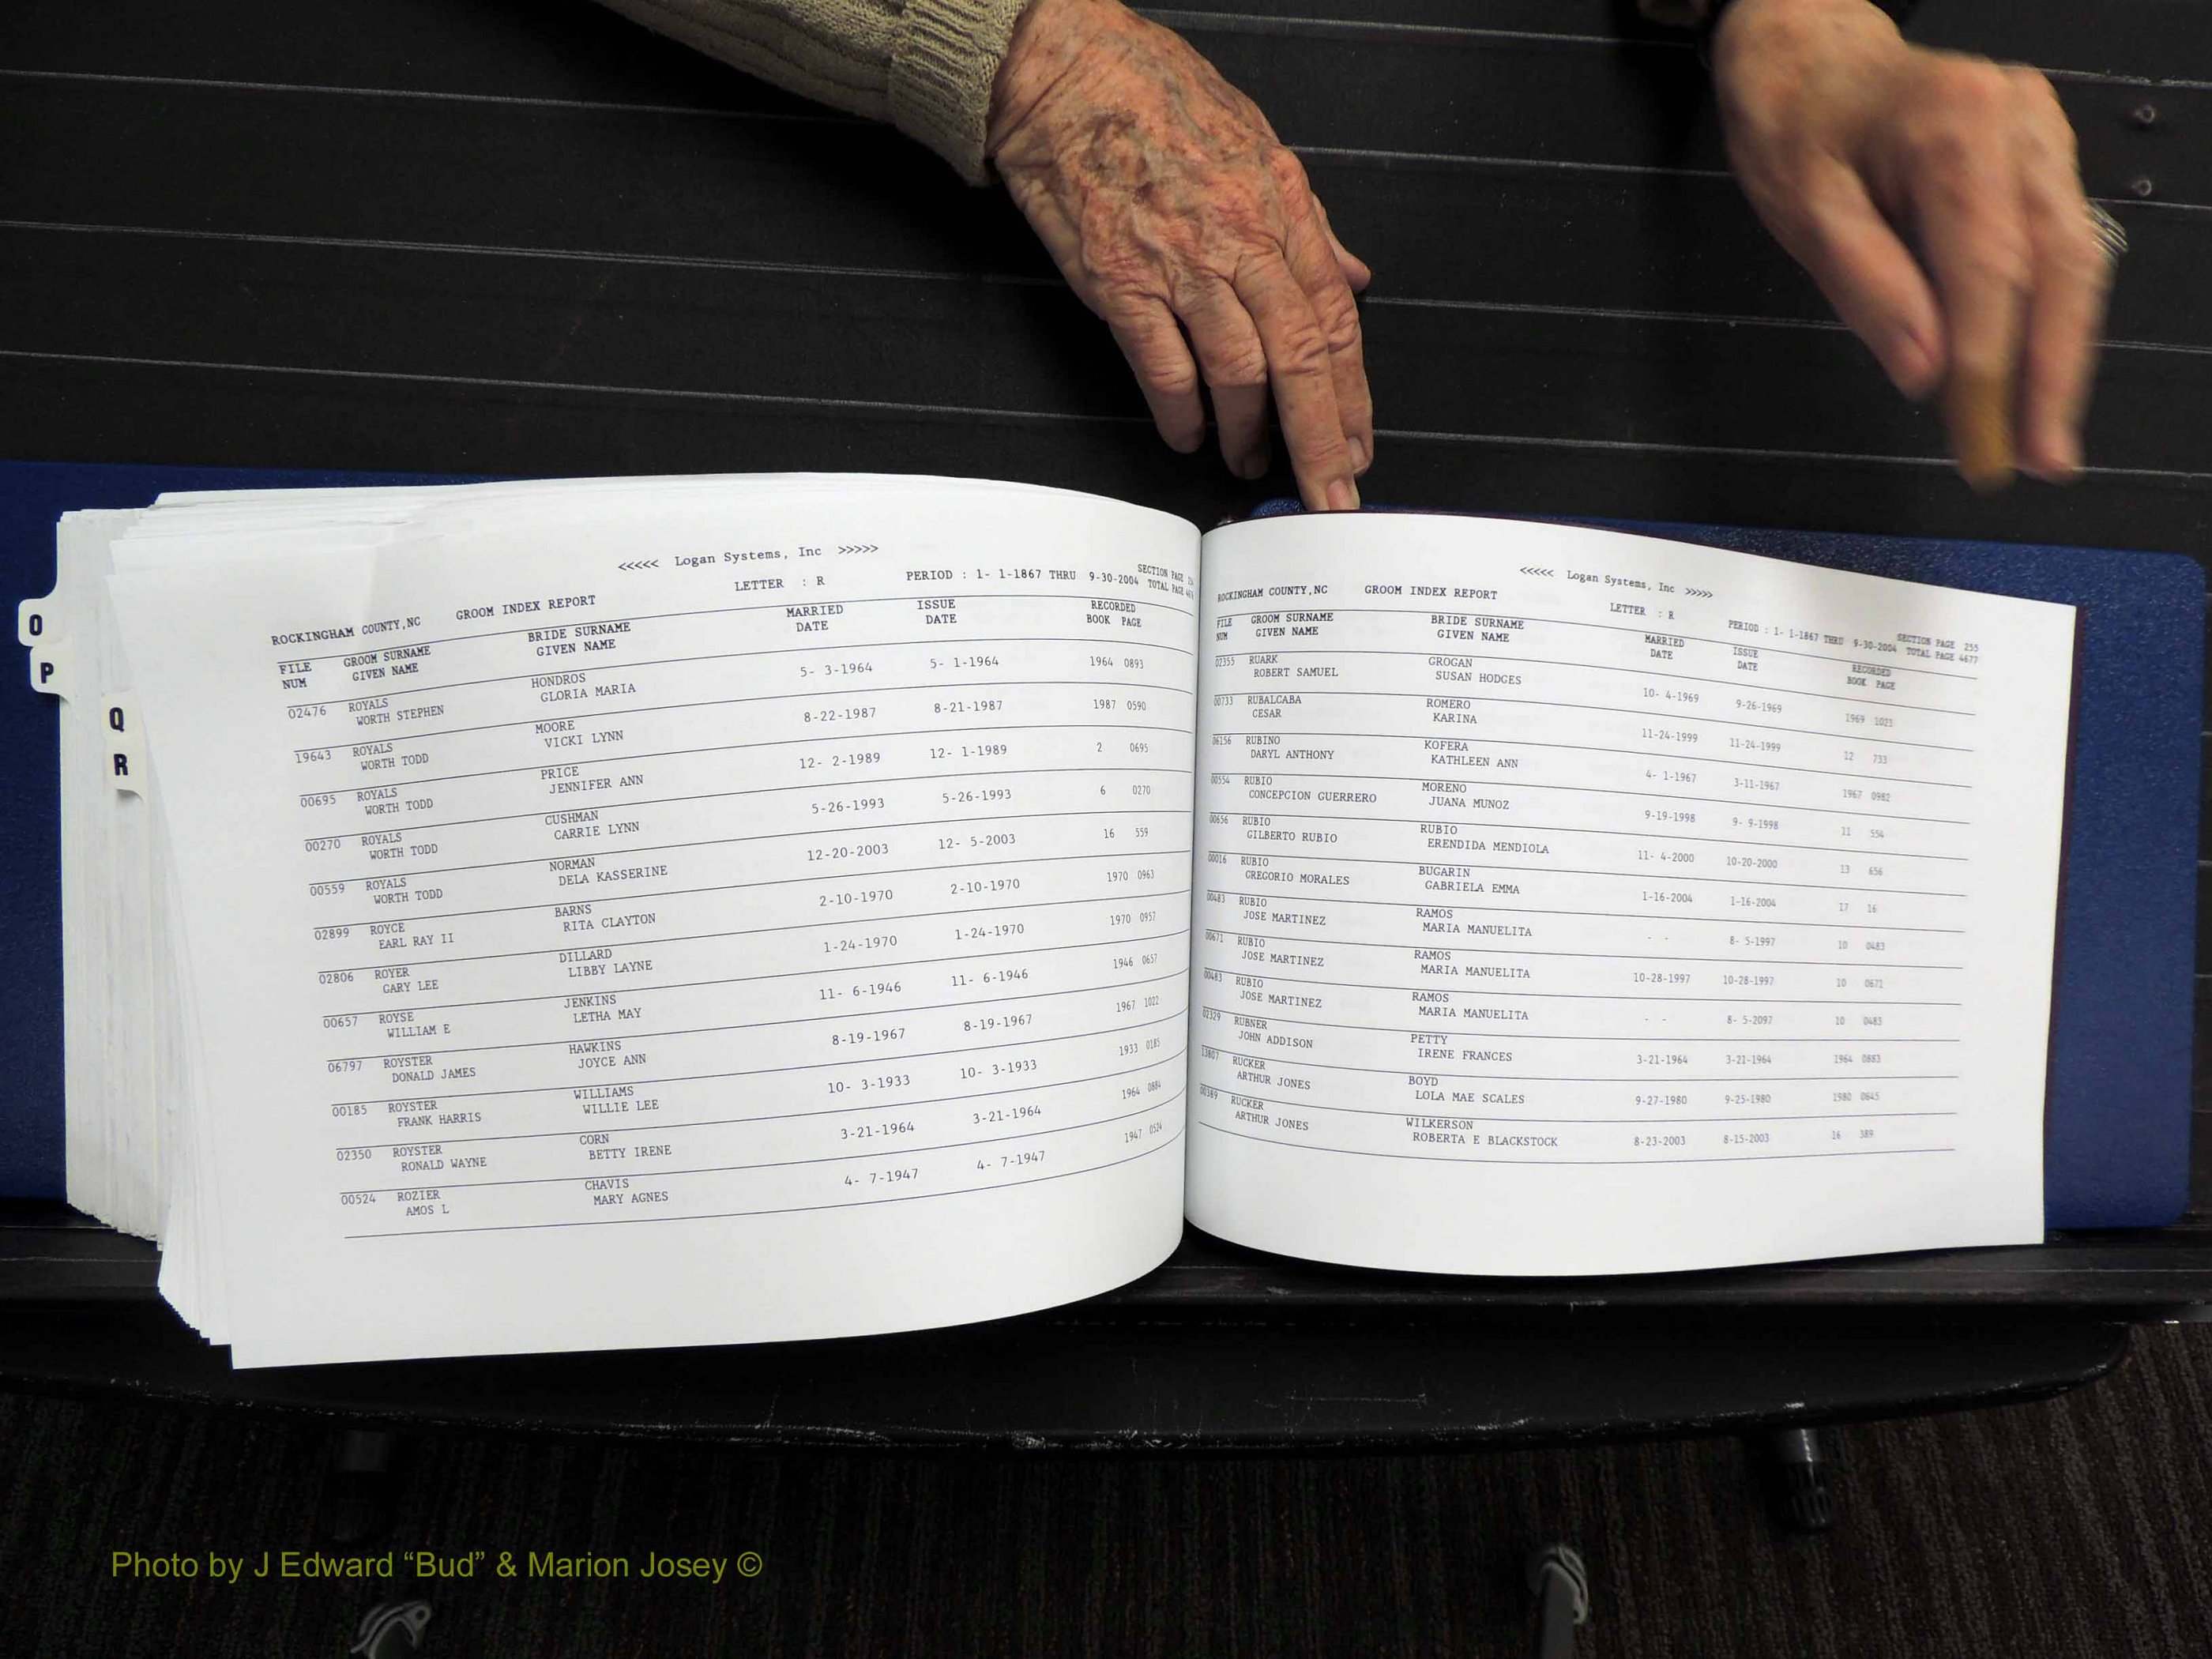 O
P
Q
R
<<<<< Logan Systems, Inc >>>>>
ROCKINGHAM COUNTY,NC GROOM INDEX REPORT LETTER : R PERIOD : 1- 1-1867 THRU 9-30-2004 SECTION PAGE
TOTAL PAGE
FILE GROOM SURNAME BRIDE SURNAME MARRIED ISSUE RECORDED
NUM GIVEN NAME GIVEN NAME DATE DATE BOOK PAGE
02476 ROYALS HONDROS 5- 3-1964 5- 1-1964 1964 0893
WORTH STEPHEN GLORIA MARIA
19643 ROYALS MOORE 8-22-1987 8-21-1987 1987 0590
WORTH TODD VICKI LYNN
00695 ROYALS PRICE 12- 2-1989 12- 1-1989 2 0695
WORTH TODD JENNIFER ANN
00270 ROYALS CUSHMAN 5-26-1993 5-26-1993 6 0270
WORTH TODD CARRIE LYNN
00559 ROYALS NORMAN 12-20-2003 12- 5-2003 16 559
WORTH TODD DELA KASSERINE
02899 ROYCE BARNS 2-10-1970 2-10-1970 1970 0963
EARL RAY II RITA CLAYTON
02806 ROYER DILLARD 1-24-1970 1-24-1970 1970 0957
GARY LEE LIBBY LAYNE
00657 ROYSE JENKINS 11- 6-1946 11- 6-1946 1946 0657
WILLIAM E LETHA MAY
06797 ROYSTER HAWKINS 8-19-1967 8-19-1967 1967 1022
DONALD JAMES JOYCE ANN
00185 ROYSTER WILLIAMS 10- 3-1933 10- 3-1933 1933 0185
FRANK HARRIS WILLIE LEE
02350 ROYSTER CORN 3-21-1964 3-21-1964 1964 0884
RONALD WAYNE BETTY IRENE
00524 ROZIER CHAVIS 4- 7-1947 4- 7-1947 1947 0524
AMOS L MARY AGNES
<<<<< Logan Systems, Inc >>>>>
ROCKINGHAM COUNTY,NC GROOM INDEX REPORT LETTER : R PERIOD : 1- 1-1867 THRU 9-30-2004 SECTION PAGE 255
TOTAL PAGE 4677
FILE GROOM SURNAME BRIDE SURNAME MARRIED ISSUE RECORDED
NUM GIVEN NAME GIVEN NAME DATE DATE BOOK PAGE
02355 RUARK GROGAN 10- 4-1969 9-26-1969 1969 1021
ROBERT SAMUEL SUSAN HODGES
00733 RUBALCABA ROMERO 11-24-1999 11-24-1999 12 733
CESAR KARINA
06156 RUBINO KOFERA 4- 1-1967 3-11-1967 1967 0982
DARYL ANTHONY KATHLEEN ANN
00554 RUBIO MORENO 9-19-1998 9- 9-1998 11 554
CONCEPCION GUERRERO JUANA MUNOZ
00656 RUBIO RUBIO 11- 4-2000 10-20-2000 13 656
GILBERTO RUBIO ERENDIDA MENDIOLA
00016 RUBIO BUGARIN 1-16-2004 1-16-2004 17 16
GREGORIO MORALES GABRIELA EMMA
00483 RUBIO RAMOS - - 8- 5-1997 10 0483
JOSE MARTINEZ MARIA MANUELITA
00671 RUBIO RAMOS 10-28-1997 10-28-1997 10 0671
JOSE MARTINEZ MARIA MANUELITA
00483 RUBIO RAMOS - - 8- 5-2097 10 0483
JOSE MARTINEZ MARIA MANUELITA
02329 RUBNER PETTY 3-21-1964 3-21-1964 1964 0883
JOHN ADDISON IRENE FRANCES
13807 RUCKER BOYD 9-27-1980 9-25-1980 1980 0645
ARTHUR JONES LOLA MAE SCALES
00389 RUCKER WILKERSON 8-23-2003 8-15-2003 16 389
ARTHUR JONES ROBERTA E BLACKSTOCK
Photo by J Edward “Bud” & Marion Josey ©